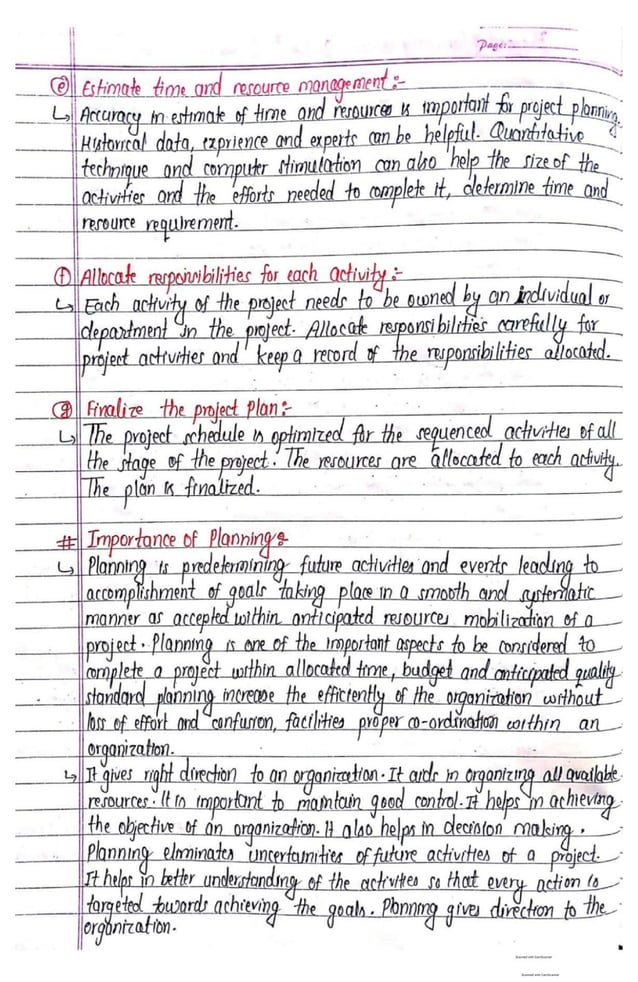 Page:
(e) Estimate time and resource management:-
↳ Accuracy in estimate of time and resources is important for project planning.
Historical data, exprience and experts can be helpful. Quantitative
technique and computer stimulation can also help the size of the
activities and the efforts needed to complete it, determine time and
resource requirement.
(f) Allocate responsibilities for each activity:-
↳ Each activity of the project needs to be owned by an individual or
department in the project. Allocate responsibilities carefully for
project activities and keep a record of the responsibilities allocated.
(g) Finalize the project Plan:-
↳ The project schedule is optimized for the sequenced activities of all
the stage of the project. The resources are allocated to each activity.
The plan is finalized.
# Importance of Planning:
↳ Planning is predetermining future activities and events leading to
accomplishment of goals taking place in a smooth and systematic
manner as accepted within anticipated resources mobilization of a
project. Planning is one of the important aspects to be considered to
complete a project within allocated time, budget and anticipated quality
standard planning increase the efficiently of the organization without
loss of effort and confusion, facilities proper co-ordination within an
organization.
↳ It gives right direction to an organization. It aids in organizing all available
resources. It is important to maintain good control. It helps in achieving
the objective of an organization. It also helps in decision making.
Planning eliminates uncertainities of future activities of a project.
It helps in better understanding of the activities so that every action is
targeted towards achieving the goals. Planning gives direction to the
organization.
Scanned with CamScanner
Scanned with CamScanner